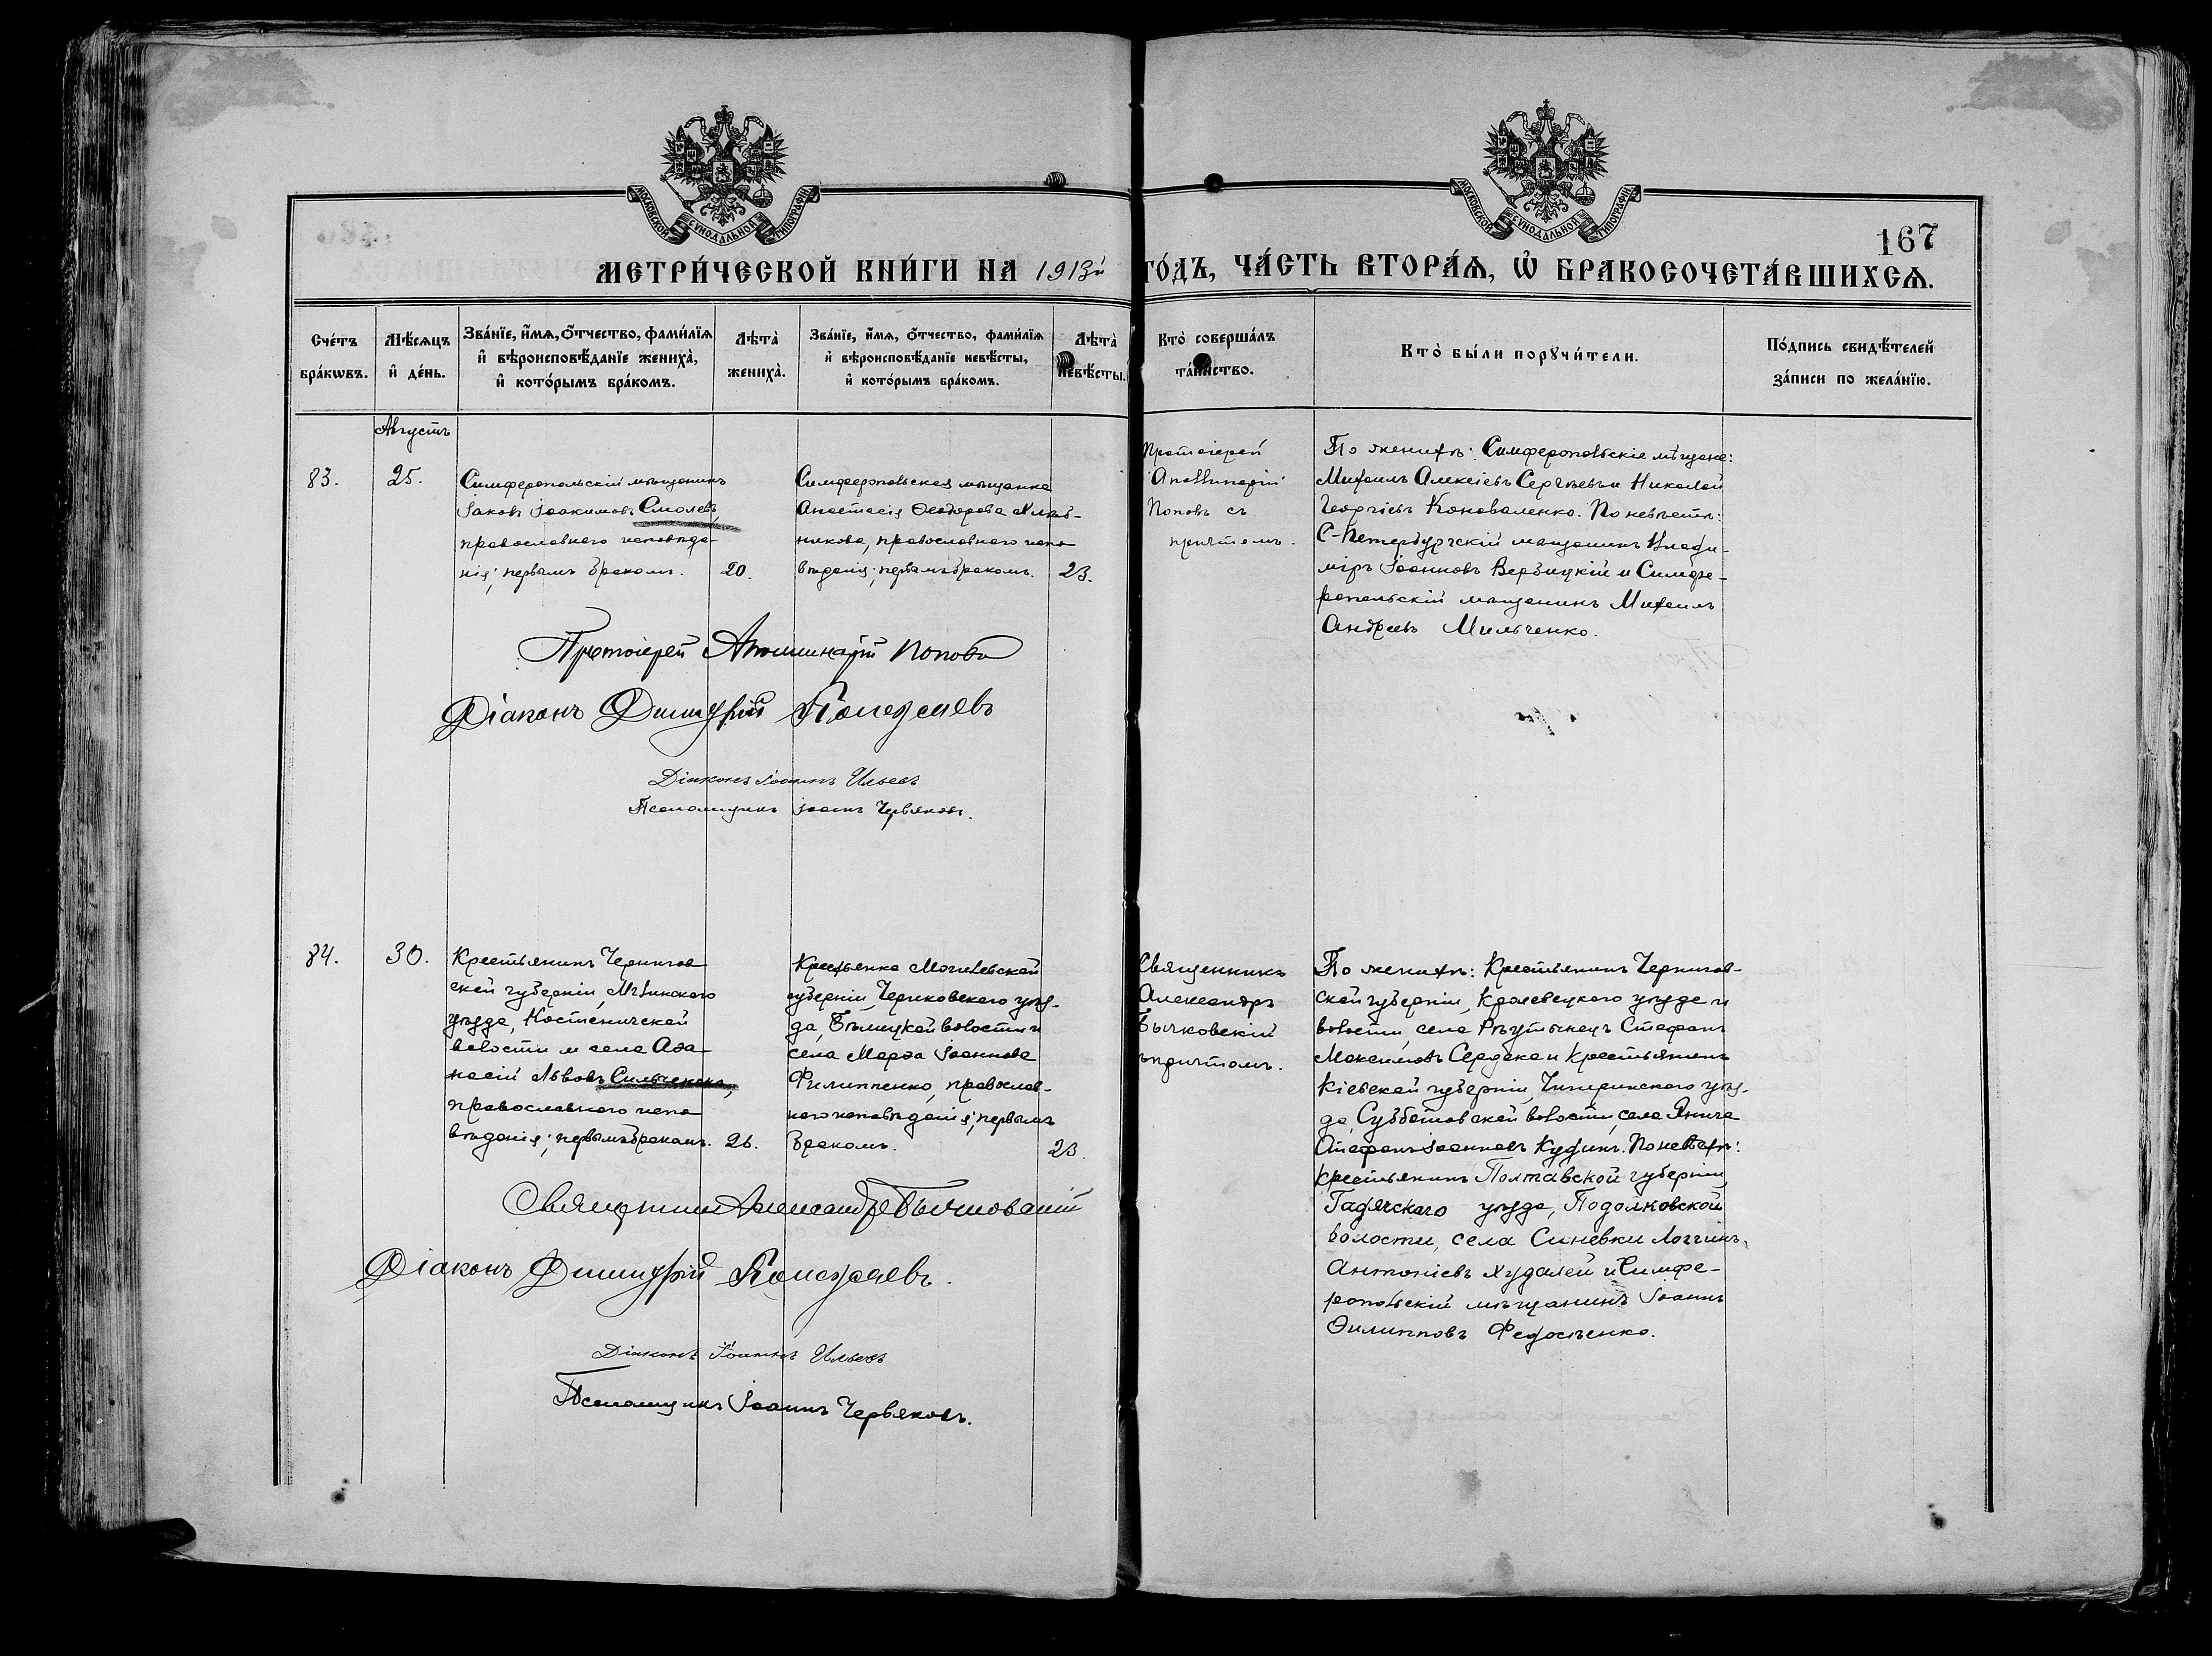 МОСКОВСКОЙ СѴНОДАЛЬНОЙ ТИПОГРАФІИ
МОСКОВСКОЙ СѴНОДАЛЬНОЙ ТИПОГРАФІИ
167
МЕТРИ́ЧЕСКОЙ КНИ́ГИ НА 1913й ГО́ДЪ, ЧА́СТЬ ВТОРА́Ѧ, Ѡ҆ БРАКОСОЧЕТА́ВШИХСѦ.
Сче́тъ
бра́кѡвъ.
Мѣ́сѧцъ
и҆ де́нь.
Зва́нїе, и҆́мѧ, ѻ҆́тчество, фами́лїѧ
и҆ вѣроисповѣ́данїе жениха̀,
и҆ кото́рымъ бра́комъ.
Лѣ́та̀
жениха̀.
Зва́нїе, и҆́мѧ, ѻ҆́тчество, фами́лїѧ
и҆ вѣроисповѣ́данїе невѣ́сты,
и҆ кото́рымъ бра́комъ.
Лѣ́та̀
невѣ́сты.
Кто̀ соверша́лъ
та́инство.
Кто̀ бы́ли порꙋчи́тели.
По́дпись свидѣ́телей
за́писи по жела́нїю.
Августъ
83.
25.
Симферопольскій мѣщанинъ
Іаковъ Іоакимовъ Смолевъ,
православнаго исповѣда-
нія; первымъ бракомъ.
20.
Симферопольская мѣщанка
Анастасія Ѳеодорова
никова, православнаго испо
вѣданія; первымъ бракомъ.
23.
Протоіерей
Аполлинарій
Поповъ съ
причтомъ.
По женихѣ: Симферопольскіе мѣщане:
Михаилъ Алексіевъ Сергѣевъ и Николай
Георгіевъ Коноваленко. По невѣстѣ:
С-Петербургскій мѣщанинъ Влади-
міръ Іоанновъ Вербицкій и Симфе-
ропольскій мѣщанинъ Михаилъ
Андреевъ Мильченко.
Протоіерей Аполлинарій Поповъ
Діаконъ Димитрій
Діаконъ Іоаннъ Ильевъ
Псаломщикъ Іоаннъ Червяковъ.
84.
30.
Крестьянинъ Чернигов
ской губерніи, Мглинскаго
уѣзда, Костеничской
волости и села Аѳа
насій Львовъ Сильченко,
православнаго испо
вѣданія; первымъ бракомъ.
26.
Крестьянка Могилевской
губерніи, Чериковскаго уѣз-
да, Бѣлицкой волости и
села Марѳа Іоаннова
Филиппенко, православ-
наго исповѣданія; первымъ
бракомъ.
23.
Священникъ
Александръ
Бычковскій
съ причтомъ.
По женихѣ: Крестьянинъ Чернигов-
ской губерніи, Кролевецкаго уѣзда и
волости, села Рѣутинецъ Стефанъ
Максимовъ Сердека и крестьянинъ
Кіевской губерніи, Чигиринскаго уѣз-
да, Субботовской волости, села Янича
Стефанъ Іоанновъ Кудинъ. По невѣстѣ:
крестьянинъ Полтавской губерніи
Гадячскаго уѣзда, Подолковской
волости, села Синевки Логгинъ
Антоніевъ Худолей и Симфе-
ропольскій мѣщанинъ Іоаннъ
Филипповъ Федосѣенко.
Священникъ Александръ Бычковскій
Діаконъ Димитрій
Діаконъ Іоаннъ Ильевъ
Псаломщикъ Іоаннъ Червяковъ.